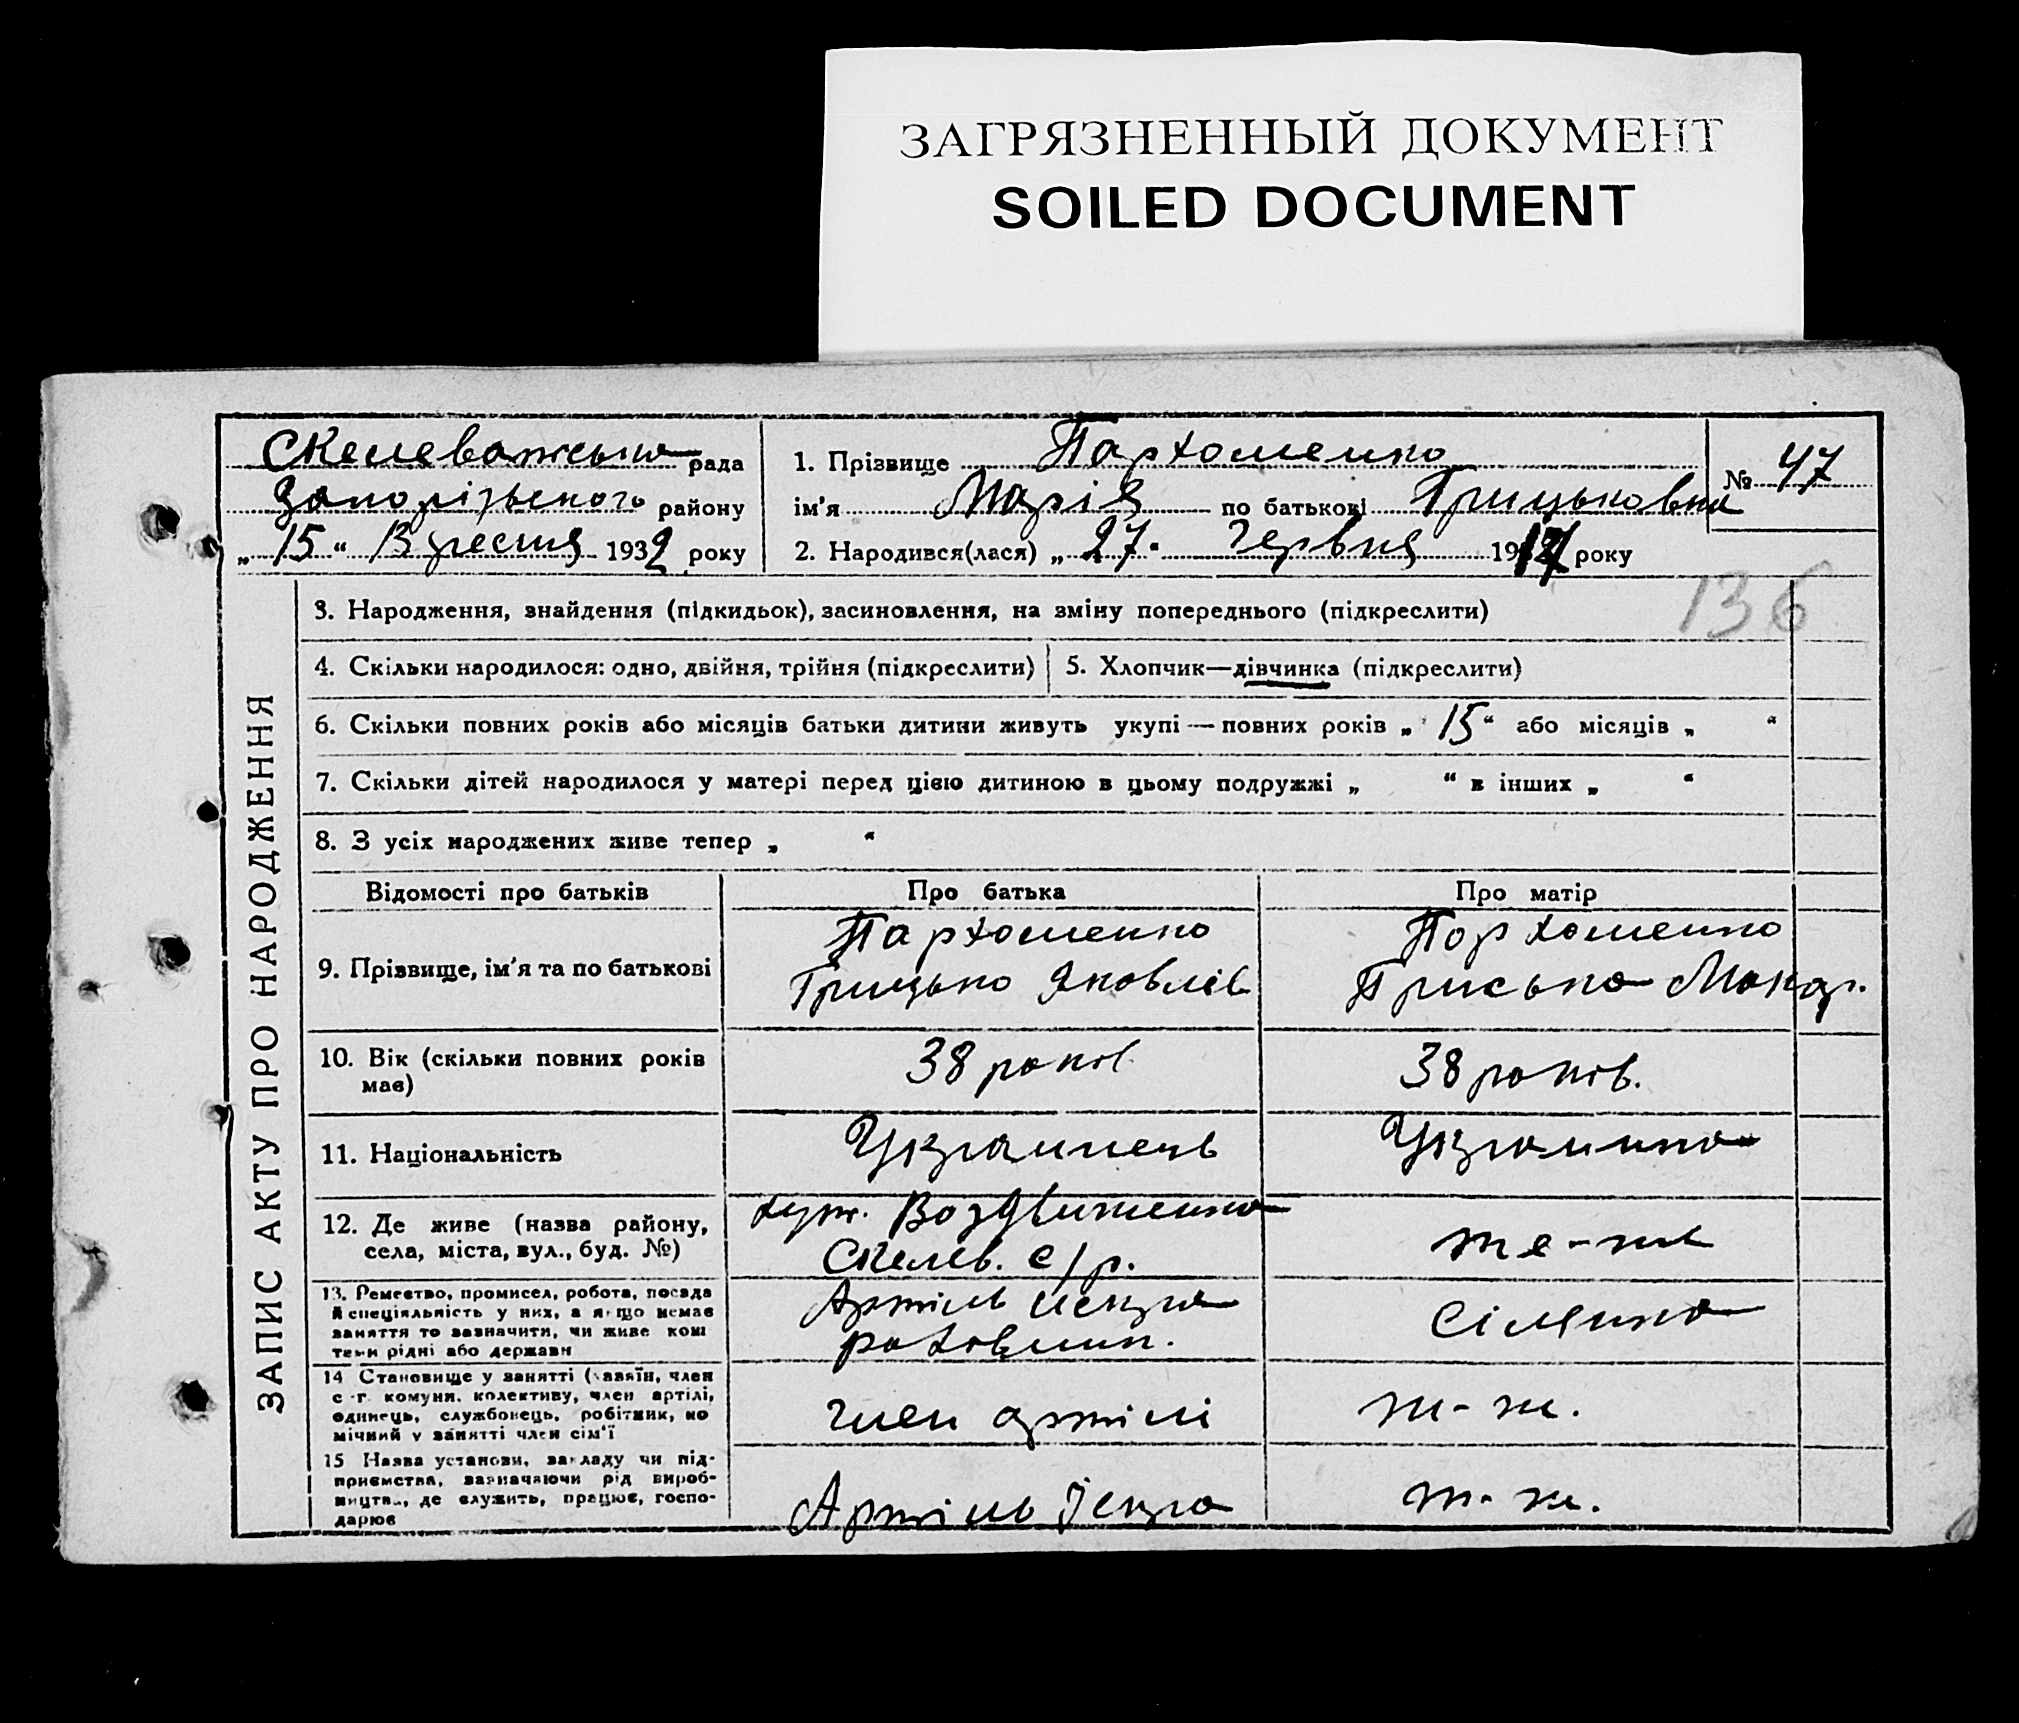 ЗАГРЯЗНЕННЫЙ ДОКУМЕНТ
SOILED DOCUMENT
Скелеватська рада
Запорізького району
„ 15 “ Вересня 1932 року
1. Прізвище Пархоменко
ім'я Марія по батькові Грицьковна
№ 47
2. Народився(лася) „ 27 “ Червня 1917 року
136
ЗАПИС АКТУ ПРО НАРОДЖЕННЯ
3. Народження, знайдення (підкидьок), засиновлення, на зміну попереднього (підкреслити)
4. Скільки народилося: одно, двійня, трійня (підкреслити)
5. Хлопчик—дівчинка (підкреслити)
6. Скільки повних років або місяців батьки дитини живуть укупі — повних років „ 15 “ або місяців „ “
7. Скільки дітей народилося у матері перед цією дитиною в цьому подружжі „ “ в інших „ “
8. З усіх народжених живе тепер „ “
Відомості про батьків
Про батька
Про матір
9. Прізвище, ім'я та по батькові
Пархоменко
Грицько Яковлів
Пархоменко
Приська Макар.
10. Вік (скільки повних років
має)
38 років
38 років.
11. Національність
Українець
Українка
12. Де живе (назва району,
села, міста, вул., буд. №)
хут. Воздвиженка
Скелев. с/р.
те-ж
13. Ремество, промисел, робота, посада
й спеціяльність у них, а якщо немає
заняття то зазначити, чи живе кош
теми рідні або держави
Артіль искра
рахівник.
Сімянка
14 Становище у занятті (хазяїн, член
с-г. комуни, колективу, член артілі,
одинець, службовець, робітник, по
мічний у занятті член сім'ї
член артілі
т-ж.
15 Назва установи, закладу чи під-
приємства, зазначаючи рід вироб-
ництва, де служить, працює, госпо-
дарює
Артіль Іскра
т-ж.